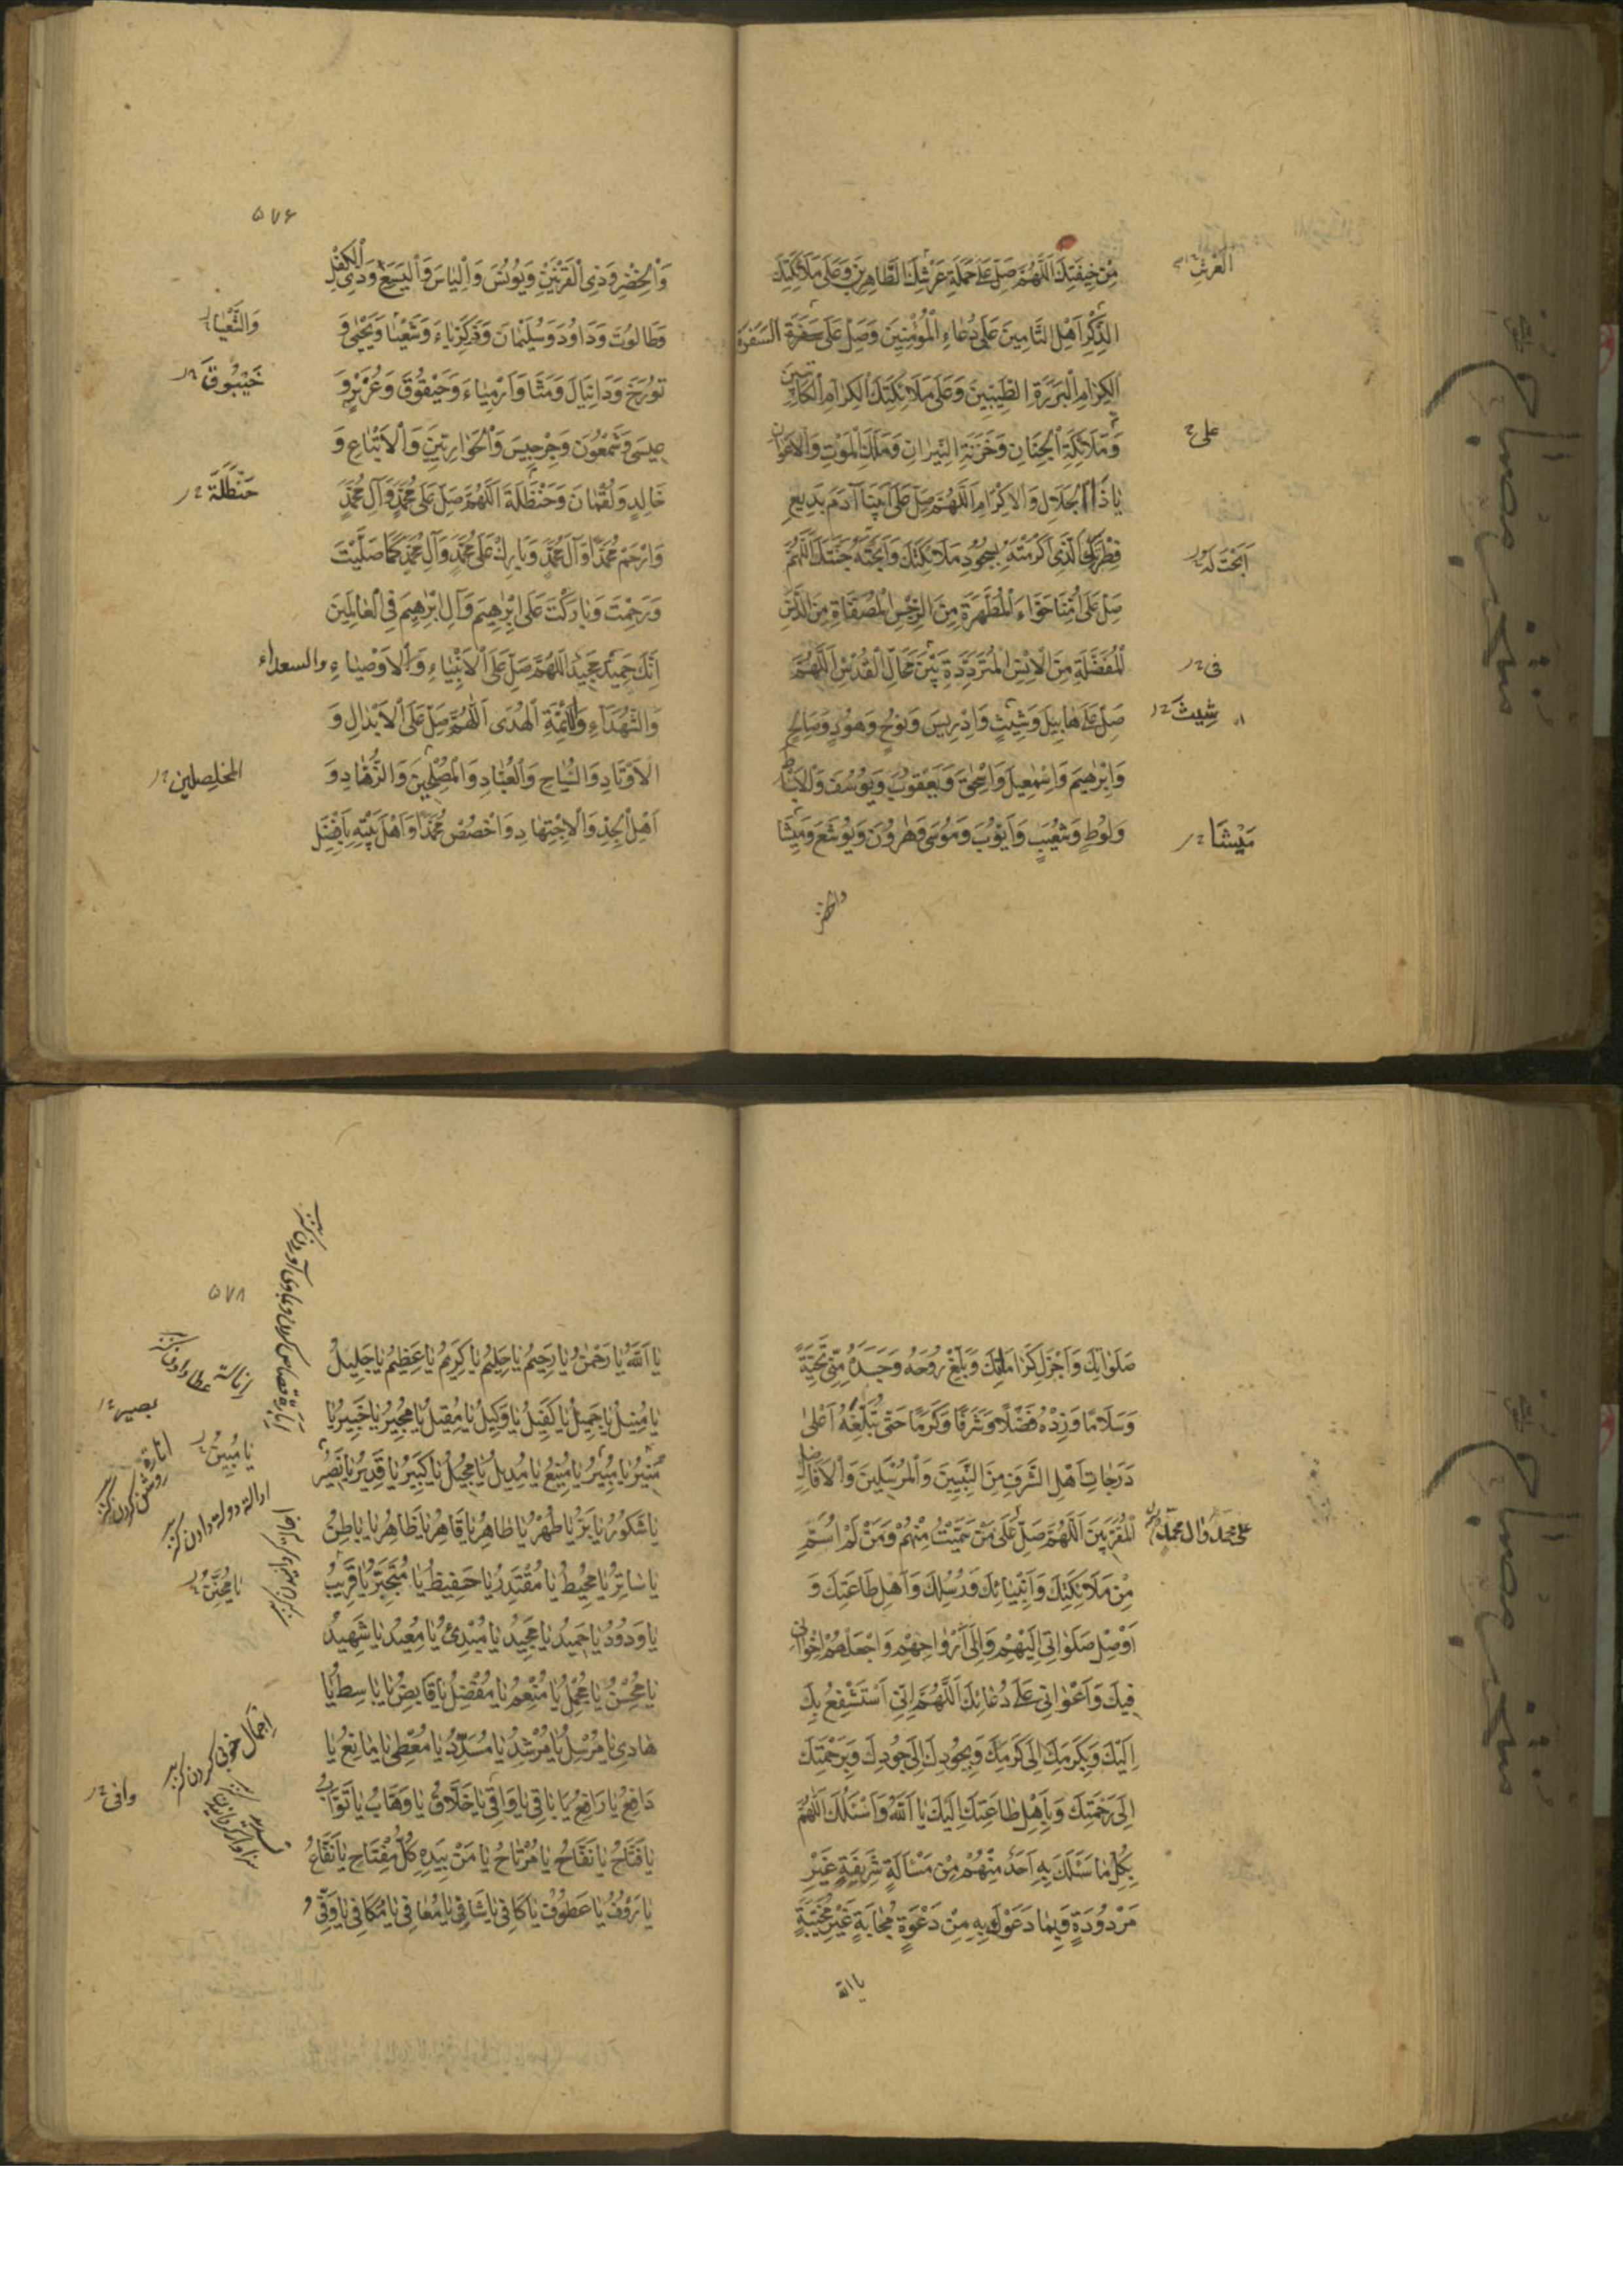 مِنْ خِيفَتِكَ اَللّٰهُمَّ صَلِّ عَلٰى حَمَلَةِ عَرْشِكَ الطَّاهِرِينَ وَعَلٰى مَلَائِكَتِكَ
الذِّكْرِ اَهْلِ التَّامِينَ عَلٰى دُعَاءِ الْمُؤْمِنِينَ وَصَلِّ عَلٰى سَفَرَةِ السَفَرَةِ
الْكِرَامِ الْبَرَرَةِ الطَّيِّبِينَ وَعَلٰى مَلَائِكَتِكَ الْكِرَامِ الْكَاتِبِينَ
وَمَلَائِكَةِ الْجِنَانِ وَخَزَنَةِ النِّيرَانِ وَمَلَكِ الْمَوْتِ وَالْاَعْوَانِ
يَا ذَا الْجَلَالِ وَالْاِكْرَامِ اَللّٰهُمَّ صَلِّ عَلٰى اَبِينَا آدَمَ بَدِيعِ
فِطْرَتِكَ الَّذِي كَرَّمْتَهُ بِسُجُودِ مَلَائِكَتِكَ وَاَبَحْتَهُ جَنَّتَكَ اَللّٰهُمَّ
صَلِّ عَلٰى اُمِّنَا حَوَّاءَ الْمُطَهَّرَةِ مِنَ الرِّجْسِ الْمُصَفَّاةِ مِنَ الدَّنَسِ
الْمُفَضَّلَةِ مِنَ الْاِنْسِ الْمُتَرَدِّدَةِ بَيْنَ مَحَالِّ الْقُدْسِ اَللّٰهُمَّ
صَلِّ عَلٰى هَابِيلَ وَشِيثٍ وَاِدْرِيسَ وَنُوحٍ وَهُودٍ وَصَالِحٍ
وَاِبْرٰهِيمَ وَاِسْمٰعِيلَ وَاِسْحٰقَ وَيَعْقُوبَ وَيُوسُفَ وَالْاَسْبَاطِ
وَلُوطٍ وَشُعَيْبٍ وَاَيُّوبَ وَمُوسٰى وَهٰرُونَ وَيُوشَعَ وَمِيشَا
والخضر
على
اَبَحْتَ لَهُ
فى
شِيثَ
مَيْشَا
۵۷۶
وَالْخِضْرِ وَذِي الْقَرْنَيْنِ وَيُونُسَ وَاِلْيَاسَ وَالْيَسَعَ وَذِي الْكِفْلِ
وَطَالُوتَ وَدَاوُدَ وَسُلَيْمَانَ وَزَكَرِيَّاءَ وَشَعْيَا وَيَحْيٰى وَ
تُورَخَ وَدَانِيَالَ وَمَتَّا وَاَرْمِيَاءَ وَحَيْقُوقَ وَعُزَيْرٍ وَ
عِيسٰى وَشَمْعُونَ وَجِرْجِيسَ وَالْحَوَارِيِّينَ وَالْاَتْبَاعِ وَ
خَالِدٍ وَلُقْمَانَ وَحَنْظَلَةَ اَللّٰهُمَّ صَلِّ عَلٰى مُحَمَّدٍ وَآلِ مُحَمَّدٍ
وَارْحَمْ مُحَمَّدًا وَآلَ مُحَمَّدٍ وَبَارِكْ عَلٰى مُحَمَّدٍ وَآلِ مُحَمَّدٍ كَمَا صَلَّيْتَ
وَرَحِمْتَ وَبَارَكْتَ عَلٰى اِبْرٰهِيمَ وَآلِ اِبْرٰهِيمَ فِي الْعَالَمِينَ
اِنَّكَ حَمِيدٌ مَجِيدٌ اَللّٰهُمَّ صَلِّ عَلَى الْاَنْبِيَاءِ وَالْاَوْصِيَاءِ والسعداء
وَالشُّهَدَاءِ وَاَئِمَّةِ الْهُدٰى اَللّٰهُمَّ صَلِّ عَلَى الْاَبْدَالِ وَ
الْاَوْتَادِ وَالسُّيَّاحِ وَالْعُبَّادِ وَالْمُصْلِحِينَ وَالزُّهَّادِ وَ
اَهْلِ الْجِدِّ وَالْاِجْتِهَادِ وَاخْصُصْ مُحَمَّدًا وَاَهْلَ بَيْتِهِ بِاَفْضَلِ
خَيْبُوقَ
حَنْظَلَةَ
المخلصين
صَلَوَاتِكَ وَاَجْزَلِ كَرَامَاتِكَ وَبَلِّغْ رُوحَهُ وَجَسَدَهُ مِنِّي تَحِيَّةً
وَسَلَامًا وَزِدْهُ فَضْلًا وَشَرَفًا وَكَرَمًا حَتّٰى تُبَلِّغَهُ اَعْلٰى
دَرَجَاتِ اَهْلِ الشَّرَفِ مِنَ النَّبِيِّينَ وَالْمُرْسَلِينَ وَالْاَفَاضِلِ
الْمُقَرَّبِينَ اَللّٰهُمَّ صَلِّ عَلٰى مَنْ سَمَّيْتُ مِنْهُمْ وَمَنْ لَمْ اُسَمِّ
مِنْ مَلَائِكَتِكَ وَاَنْبِيَائِكَ وَرُسُلِكَ وَاَهْلِ طَاعَتِكَ وَ
اَوْصِلْ صَلَوَاتِي اِلَيْهِمْ وَاِلٰى اَرْوَاحِهِمْ وَاجْعَلْهُمْ اِخْوَانِي
فِيكَ وَاَعْوَانِي عَلٰى دُعَائِكَ اَللّٰهُمَّ اِنِّي اَسْتَشْفِعُ بِكَ
اِلَيْكَ وَبِكَرَمِكَ اِلٰى كَرَمِكَ وَبِجُودِكَ اِلٰى جُودِكَ وَبِرَحْمَتِكَ
اِلٰى رَحْمَتِكَ وَبِاَهْلِ طَاعَتِكَ اِلَيْكَ يَا اَللّٰهُ وَاَسْئَلُكَ اَللّٰهُمَّ
بِكُلِّ مَا سَئَلَكَ بِهِ اَحَدٌ مِنْهُمْ مِنْ مَسْأَلَةٍ شَرِيفَةٍ غَيْرِ
مَرْدُودَةٍ وَبِمَا دَعَوْكَ بِهِ مِنْ دَعْوَةٍ مُجَابَةٍ غَيْرِ مُخَيَّبَةٍ
يا الله
على محمد وال محمد
۵۷۸
يَا اَللّٰهُ يَا رَحْمٰنُ يَا رَحِيمُ يَا حَلِيمُ يَا كَرِيمُ يَا عَظِيمُ يَا جَلِيلُ
يَا مُنِيلُ يَا جَمِيلُ يَا كَفِيلُ يَا وَكِيلُ يَا مُقِيلُ يَا مُجِيرُ يَا خَبِيرُ يَا
مُنِيرُ يَا مُبِيرُ يَا مَنِيعُ يَا مُدِيلُ يَا مُحِيلُ يَا كَبِيرُ يَا قَدِيرُ يَا نَصِيرُ
يَا شَكُورُ يَا بَرُّ يَا طُهْرُ يَا طَاهِرُ يَا قَاهِرُ يَا ظَاهِرُ يَا بَاطِنُ
يَا سَاتِرُ يَا مُحِيطُ يَا مُقْتَدِرُ يَا حَفِيظُ يَا مُتَجَبِّرُ يَا قَرِيبُ
يَا وَدُودُ يَا حَمِيدُ يَا مَجِيدُ يَا مُبْدِئُ يَا مُعِيدُ يَا شَهِيدُ
يَا مُحْسِنُ يَا مُجْمِلُ يَا مُنْعِمُ يَا مُفْضِلُ يَا قَابِضُ يَا بَاسِطُ يَا
هَادِي يَا مُرْسِلُ يَا مُرْشِدُ يَا مُسَدِّدُ يَا مُعْطِي يَا مَانِعُ يَا
دَافِعُ يَا رَافِعُ يَا بَاقِي يَا وَاقِي يَا خَلَّاقُ يَا وَهَّابُ يَا تَوَّابُ
يَا فَتَّاحُ يَا نَفَّاحُ يَا مُرْتَاحُ يَا مَنْ بِيَدِهِ كُلُّ مِفْتَاحٍ يَا نَفَّاعُ
يَا رَؤُفُ يَا عَطُوفُ يَا كَافِي يَا شَافِي يَا مُعَافِي يَا مُكَافِي يَا وَفِيُّ
بصير
يَا مُبِينُ
انارة روشن كردن
ادالة دولة دادن
اِجمال خوبى كردن
وافى